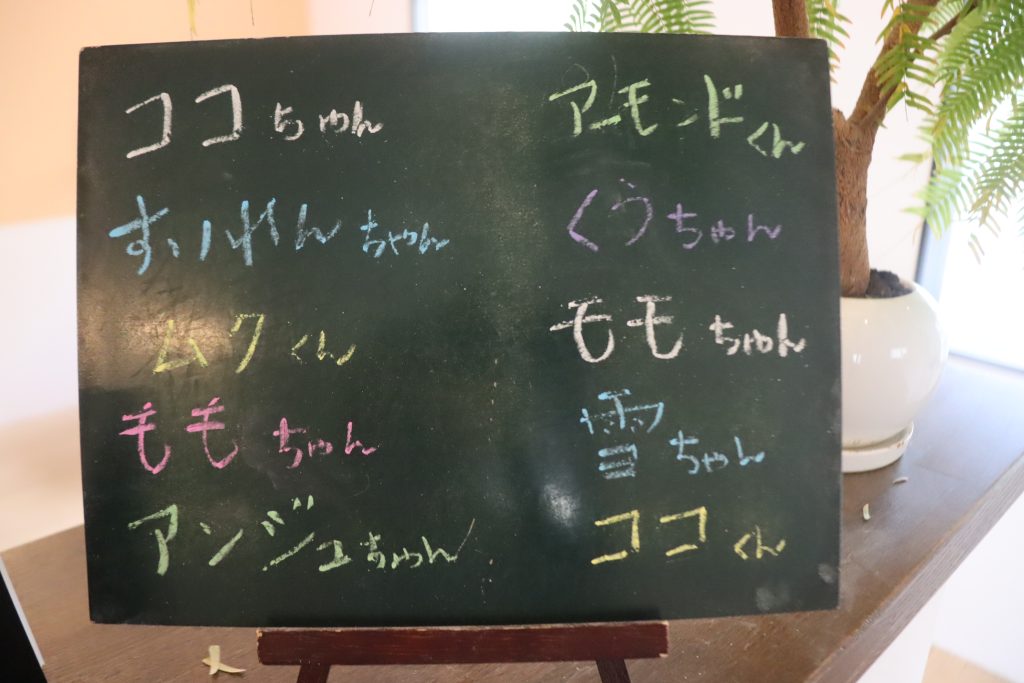 ココちゃん
すいれんちゃん
ムクくん
ももちゃん
アンジュちゃん
アーモンドくん
くうちゃん
モモちゃん
雪ちゃん
ココくん